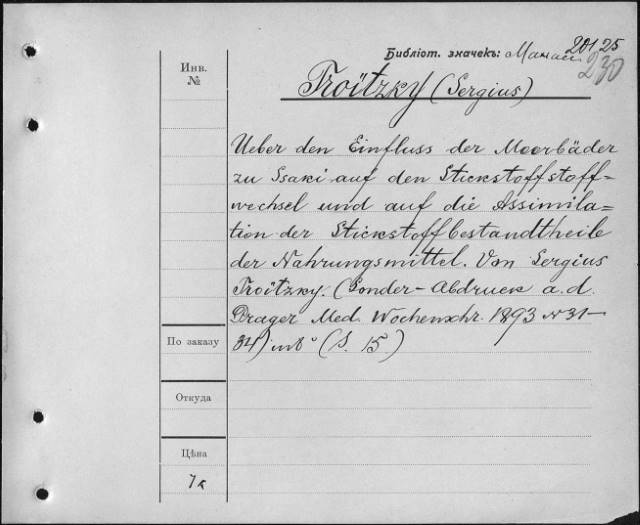 20125
Библіот. значекъ:
230
Инв.
№
Troïtzky (Sergius)
Ueber den Einfluss der Moorbäder
zu Ssaki auf den Stickstoffstoff=
wechsel und auf die Assimila=
tion der Stickstoffbestandtheile
der Nahrungsmittel. Von Sergius
Troïtzky. (Sonder-Abdruck a. d.
Prager Med. Wochenschr. 1893 N 31-
34) in 8° (S. 15)
По заказу
Откуда
Цѣна
7к